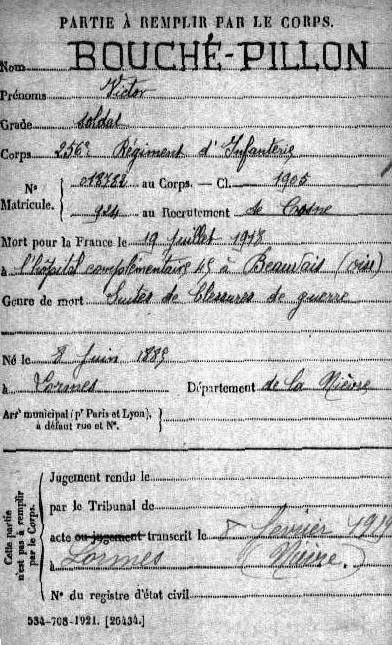 PARTIE À REMPLIR PAR LE CORPS.
Nom BOUCHÉ-PILLON
Prénoms Victor
Grade soldat
Corps 256e Régiment d'Infanterie
Nº Matricule. 018782 au Corps. — Cl. 1905
924 au Recrutement de Cosne
Mort pour la France le 19 Juillet 1918
à l'hôpital complémentaire 45 à Beauvais (Oise)
Genre de mort Suites de blessures de guerre
Né le 8 Juin 1885
à Lormes Département de la Nièvre
Arrt municipal (pr Paris et Lyon), à défaut rue et Nº.
Cette partie n'est pas à remplir par le Corps.
Jugement rendu le
par le Tribunal de
acte ou jugement transcrit le 8 février
à Lormes (Nièvre.)
Nº du registre d'état civil
534-708-1921. [26434.]